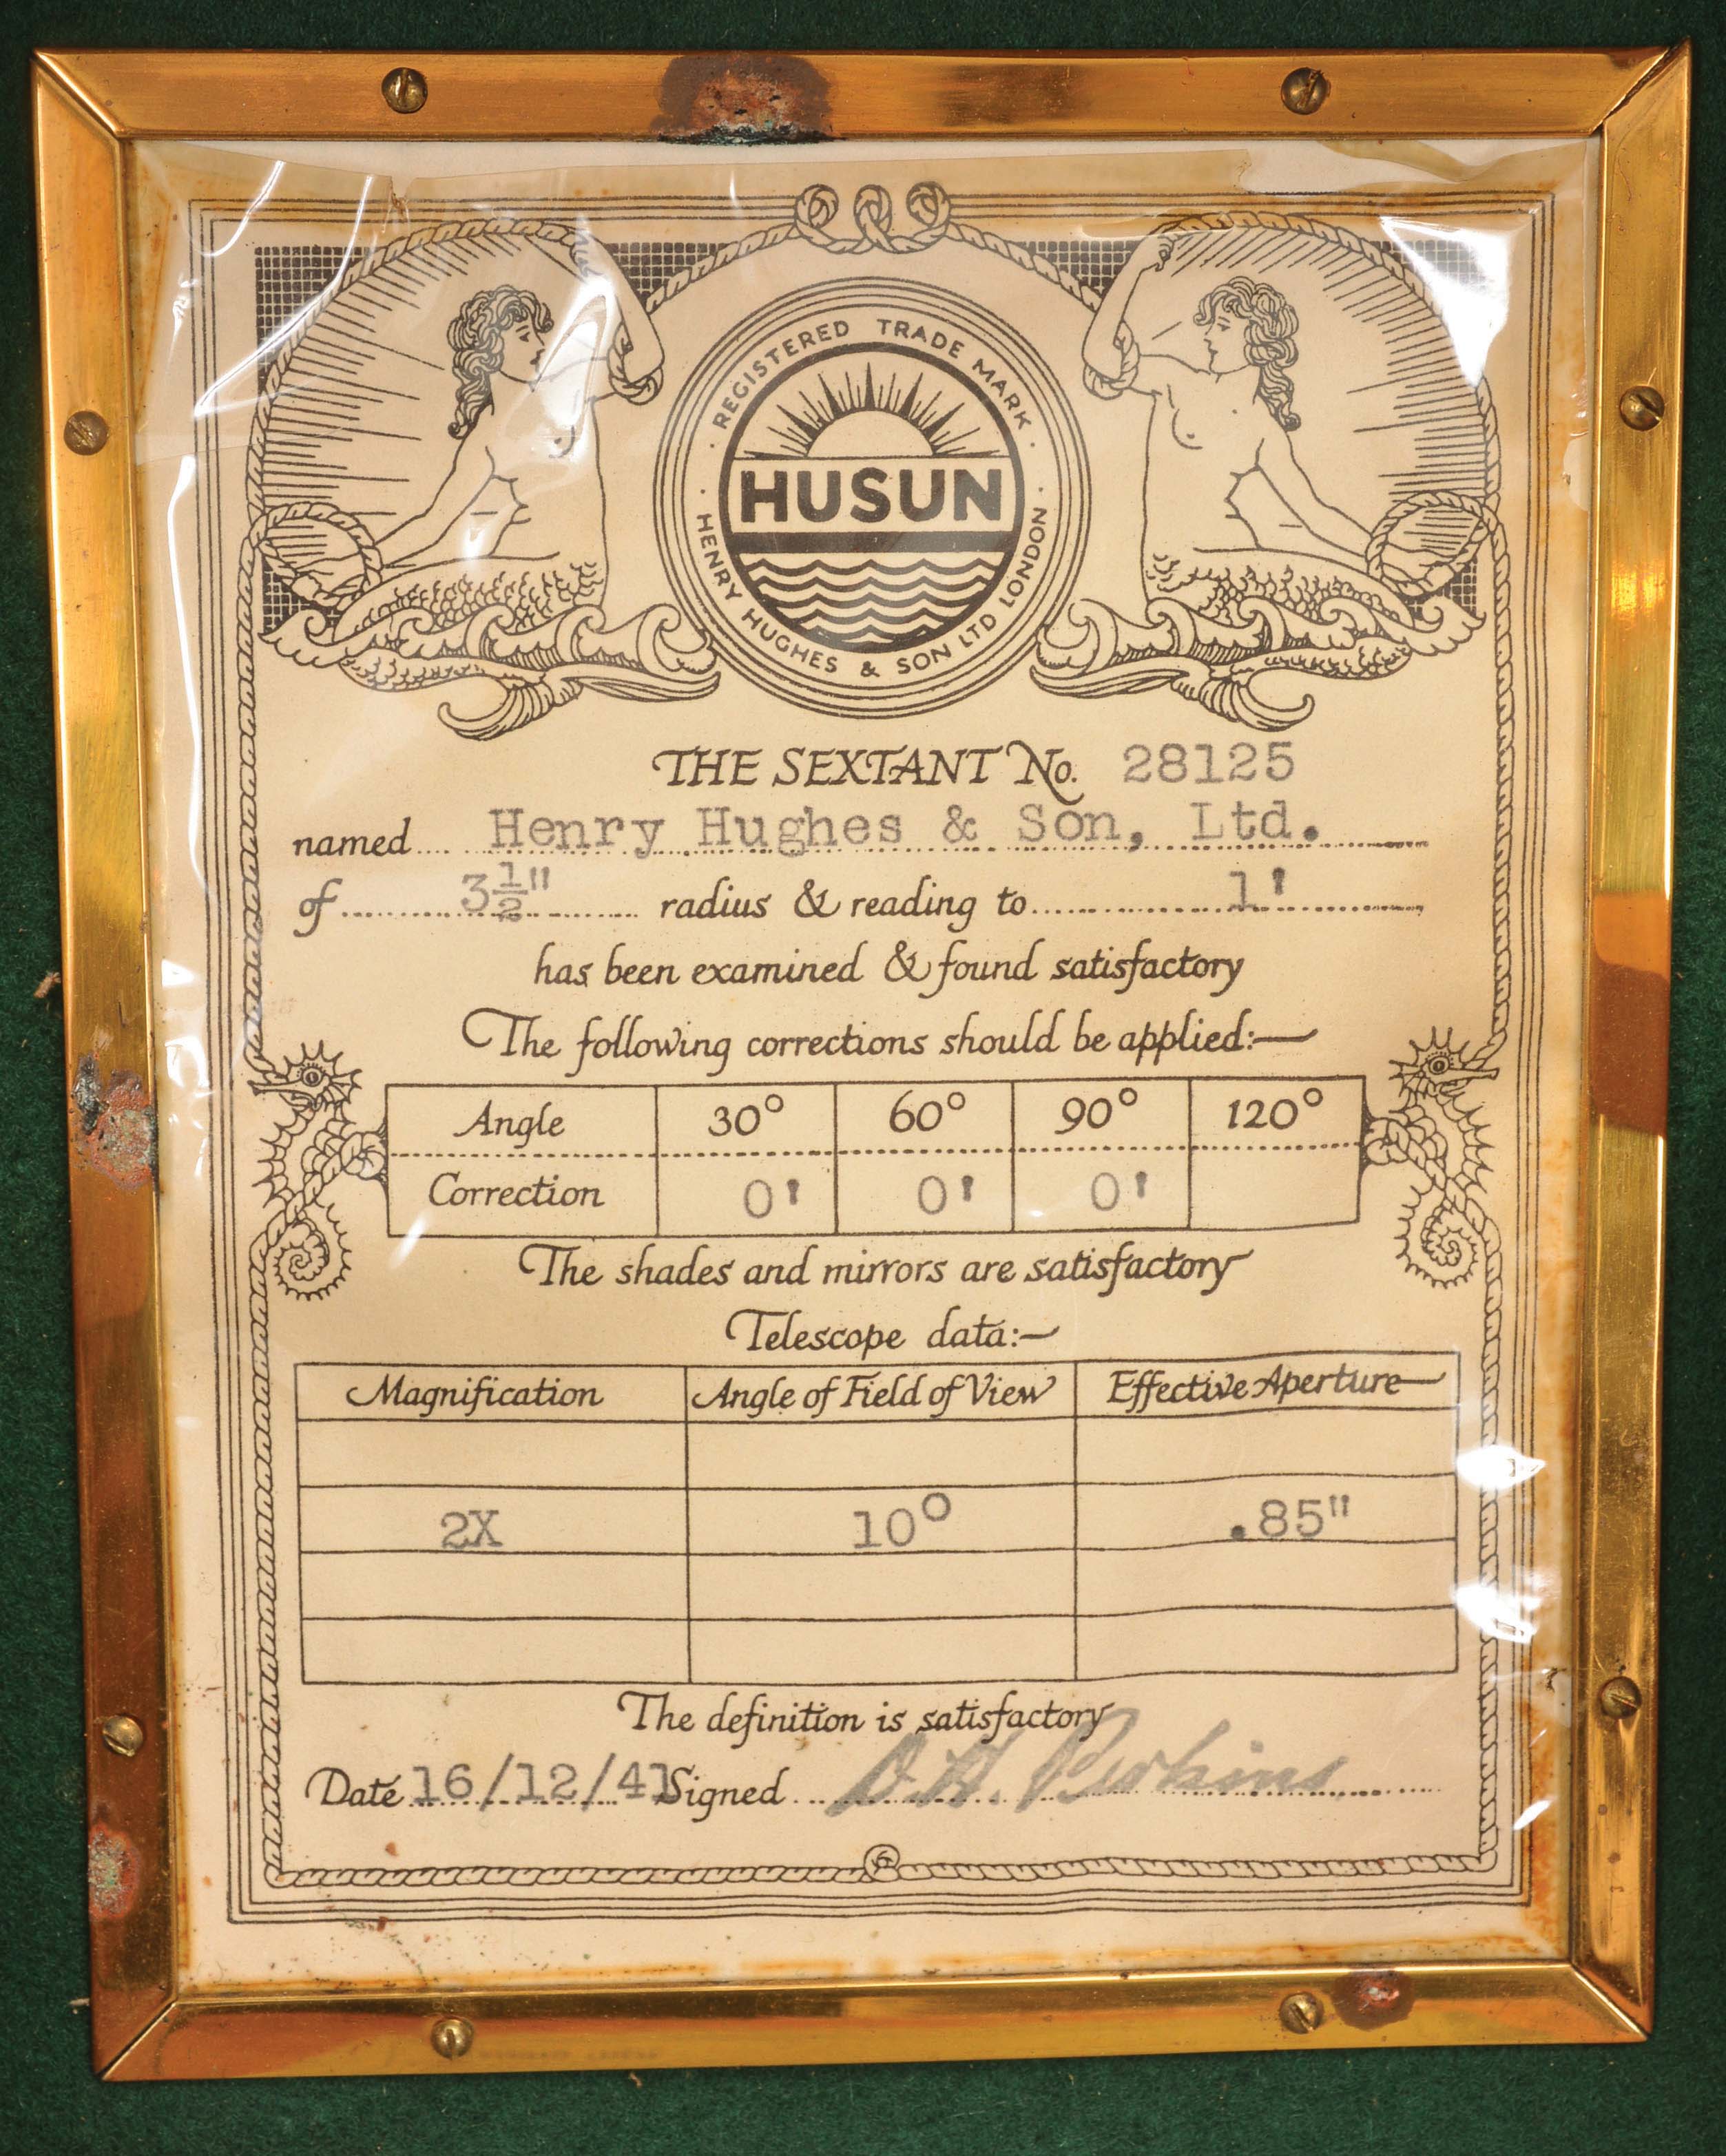 REGISTERED TRADE MARK
HUSUN
HENRY HUGHES & SON LTD LONDON
THE SEXTANT No. 28125
named Henry Hughes & Son, Ltd.
of 3½" radius & reading to 1'
has been examined & found satisfactory
The following corrections should be applied:—
Angle 30° 60° 90° 120°
Correction 0' 0' 0'
The shades and mirrors are satisfactory
Telescope data:—
Magnification Angle of Field of View Effective Aperture
2X 10° .85"
The definition is satisfactory
Date 16/12/41 Signed D.H. Perkins